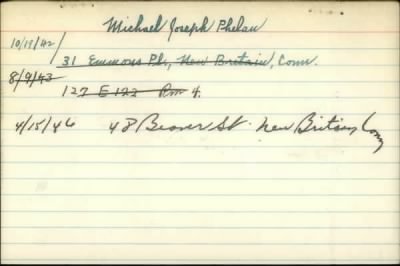 Michael Joseph Phelan
10/19/42/
31 Emmons Pl., New Britain, Conn.
8/9/43
127 E 122 Rm 4.
4/15/46 48 Beaver St. New Britain Conn